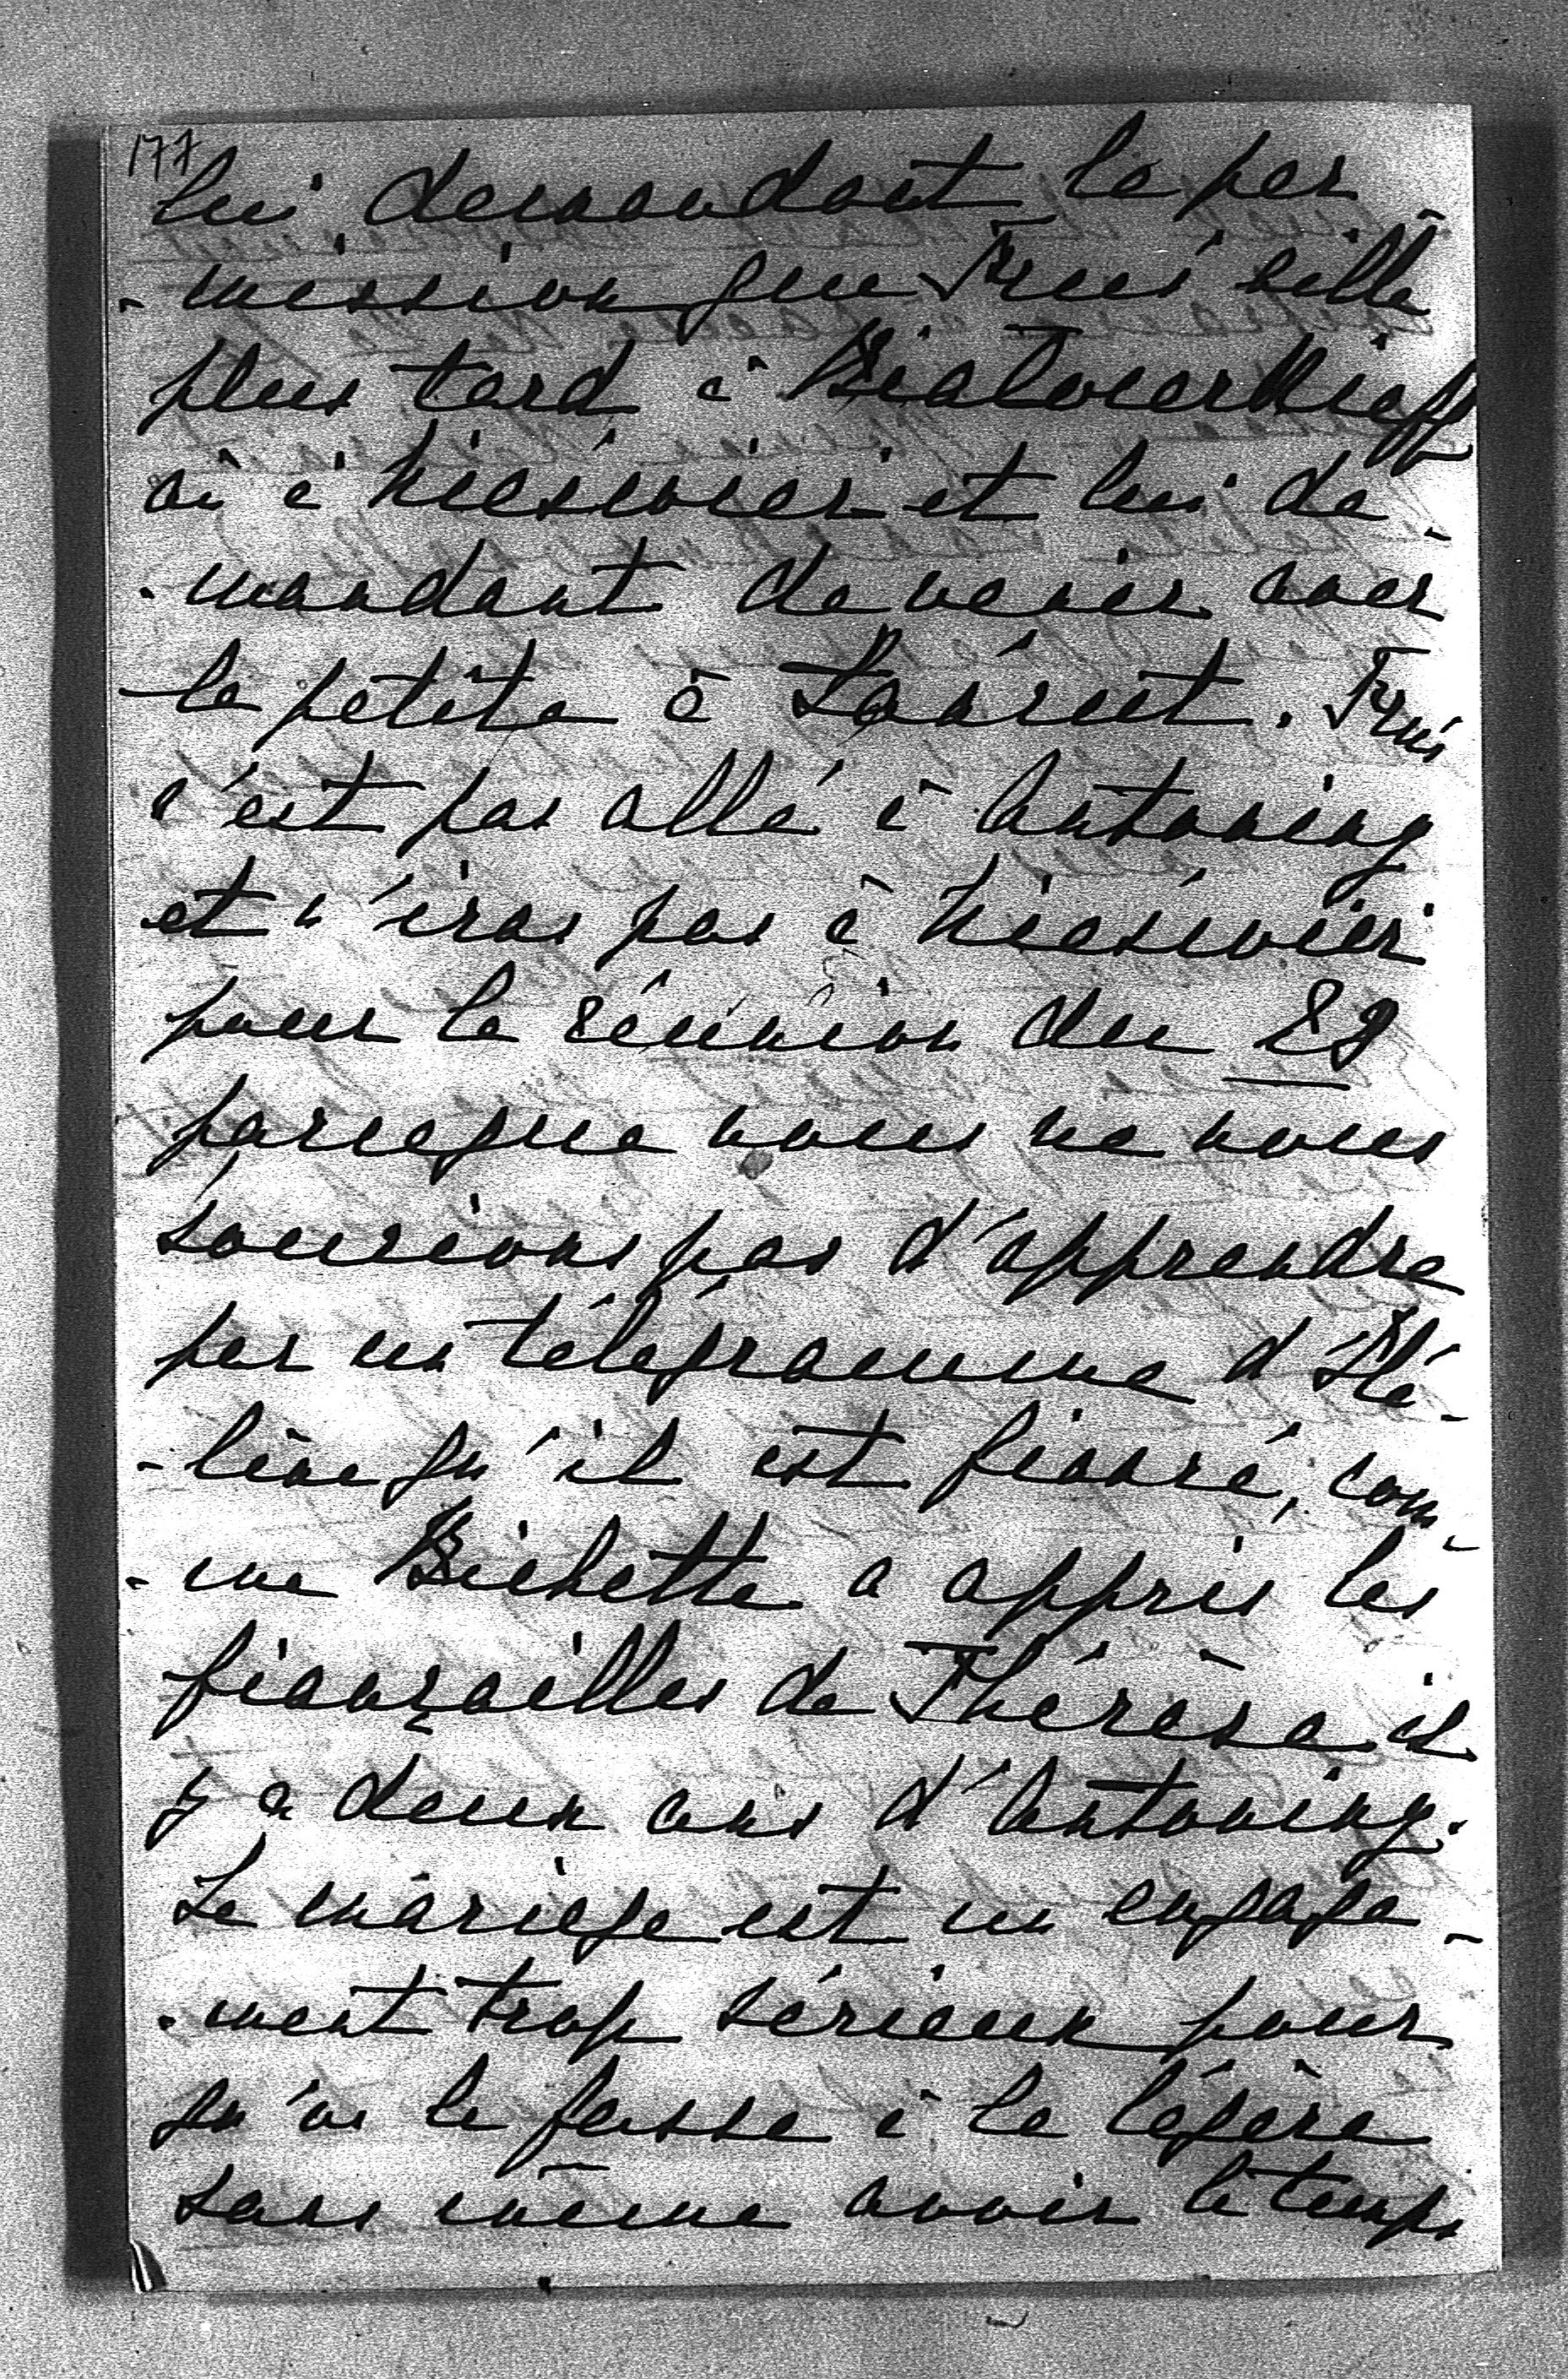 177
lui demandant la per-
-mission que Froś aille
plus tard à Białocerkieff
où à Nieśwież et lui de-
-mandant de venir avec
la petite à Łańcut. Froś
n'est pas allé à Antoniny
et n'iras pas à Nieśwież
pour la réunion du 29
parceque nous ne nous
soucions pas d'apprendre
par un télégramme d'Hé-
-lène qu'il est fiancé, com-
-me Bichette a appris les
fiançailles de Thérèse il
y a deux ans d'Antoniny.
Le mariage est un engage-
-ment trop sérieux pour
qu'on le fasse à la légère
sans même avoir le temps